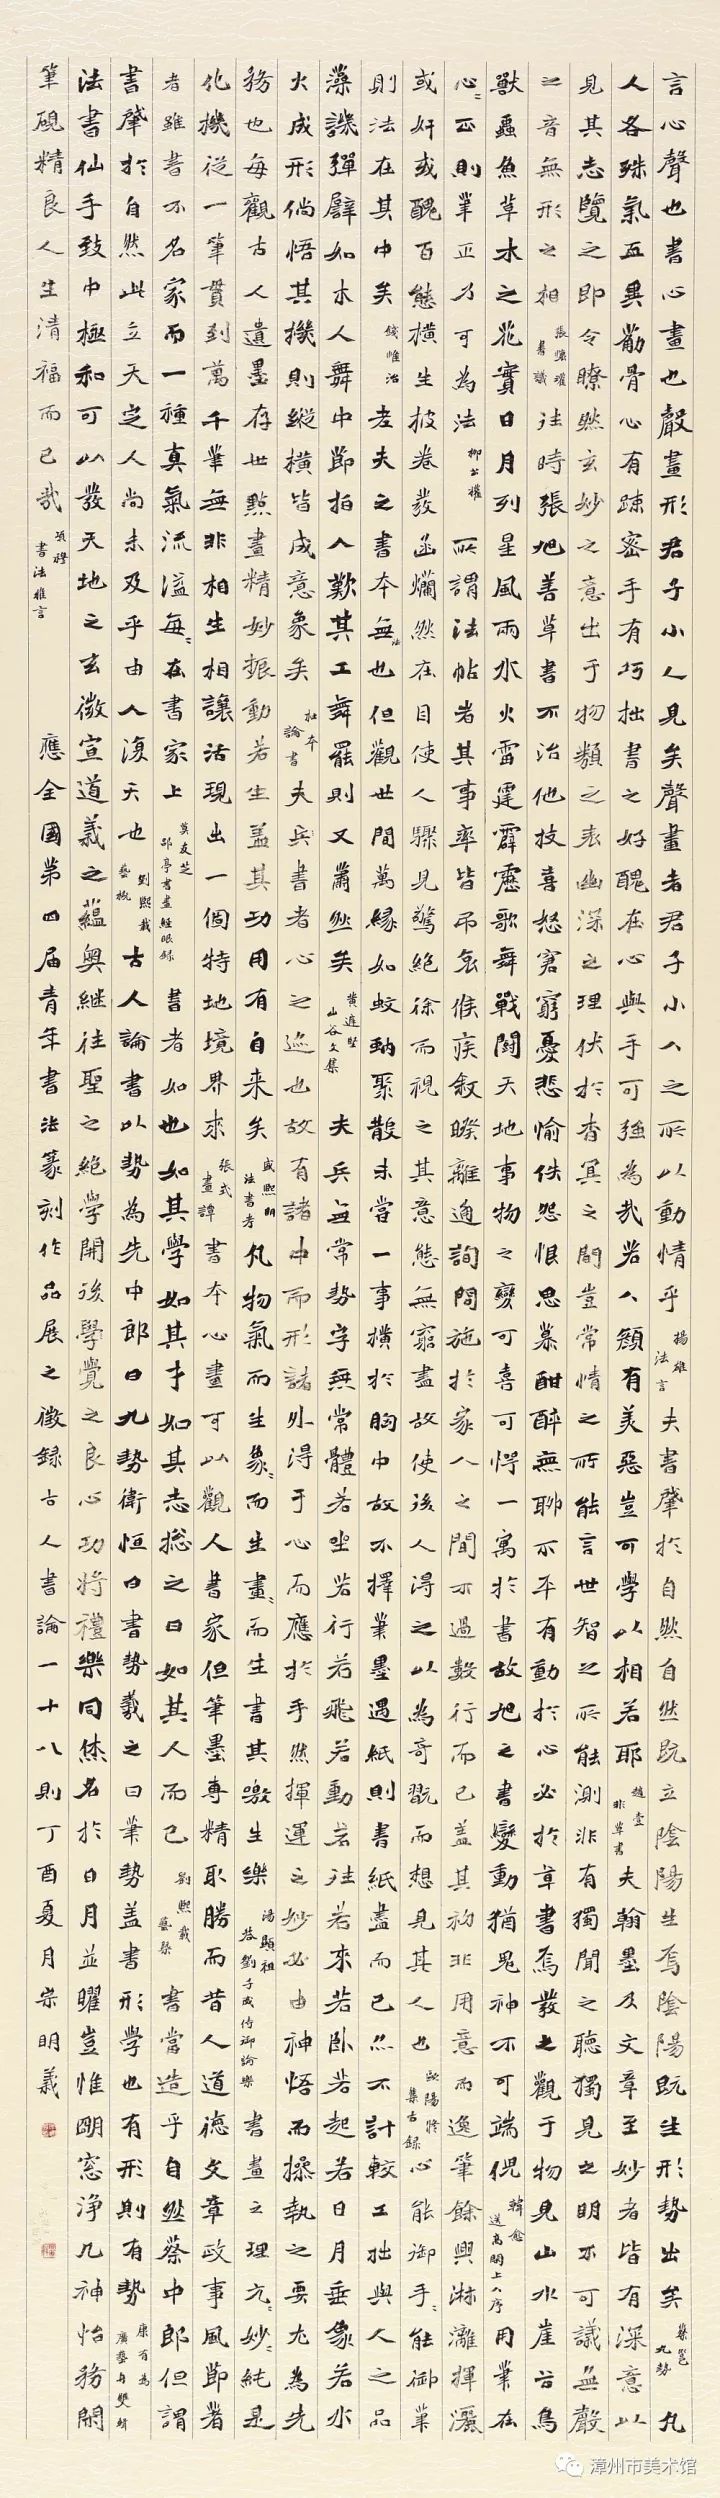 言心聲也書心畫也聲畫形君子小人見矣聲畫者君子小人之所以動情乎揚雄法言夫書肇於自然自然既立陰陽生焉陰陽既生形勢出矣蔡邕九勢凡
人各殊氣血異勵骨心有疎密手有巧拙書之好醜在心與手可強為哉若人顏有美惡豈可學以相若耶趙壹非草書夫翰墨及文章至妙者皆有深意以
見其志覽之即令瞭然玄妙之意出于物類之表幽深之理伏於杳冥之間豈常情之所能言世智之所能測非有獨聞之聽獨見之明不可議無聲
之音無形之相張懷瓘書議往時張旭善草書不治他技喜怒窘窮憂悲愉佚怨恨思慕酣醉無聊不平有動於心必於草書焉發之觀于物見山水崖谷鳥
獸蟲魚草木之花實日月列星風雨水火雷霆霹靂歌舞戰鬪天地事物之變可喜可愕一寓於書故旭之書變動猶鬼神不可端倪韓愈送高閑上人序用筆在
心心正則筆正乃可為法柳公權所謂法帖者其事率皆吊哀候疾敘睽離通詢問施於家人之間不過數行而已蓋其初非用意而逸筆餘興淋灕揮灑
或妍或醜百態橫生披卷發函爛然在目使人驟見驚絕徐而視之其意態無窮盡故使後人得之以為奇翫而想見其人也歐陽修集古錄心能御手手能御筆
則法在其中矣錢惟治老夫之書本無法也但觀世間萬緣如蚊蚋聚散未嘗一事橫於胸中故不擇筆墨遇紙則書紙盡而已亦不計較工拙與人之品
藻譏彈譬如木人舞中節拍人歎其工舞罷則又蕭然矣黃庭堅山谷文集夫兵無常勢字無常體若坐若行若飛若動若往若來若臥若起若日月垂象若水
火成形倘悟其機則縱橫皆成意象矣杜本論書夫兵書者心之迹也故有諸中而形諸外得于心而應於手然揮運之妙必由神悟而操執之要尤為先
務也每觀古人遺墨存世點畫精妙振動若生蓋其功用有自来矣盛熙明法書考凡物氣而生象象而生畫畫而生書其激生樂湯顯祖答劉子威侍御論樂書畫之理亢亢妙妙純是
化機從一筆貫到萬千筆無非相生相讓活現出一個特地境界來張式畫譚書本心畫可以觀人書家但筆墨專精取勝而昔人道德文章政事風節著
者雖書不名家而一種真氣流溢每每在書家上莫友芝邵亭書畫經眼錄書者如也如其學如其才如其志總之曰如其人而已劉熙載藝槩書當造乎自然蔡中郎但謂
書肇於自然此立天定人尚未及乎由人復天也劉熙載藝概古人論書以勢為先中郎曰九勢衛恒曰書勢羲之曰筆勢蓋書形學也有形則有勢康有為廣藝舟雙楫
法書仙手致中極和可以發天地之玄微宣道義之蘊奧繼往聖之絕學開後學覺之良心功將禮樂同休名於日月並曜豈惟明窓淨几神怡務閑
筆硯精良人生清福而已哉項穆書法雅言 應全國第四届青年書法篆刻作品展之徵錄古人書論一十八則丁酉夏月宗明義
漳州市美术馆